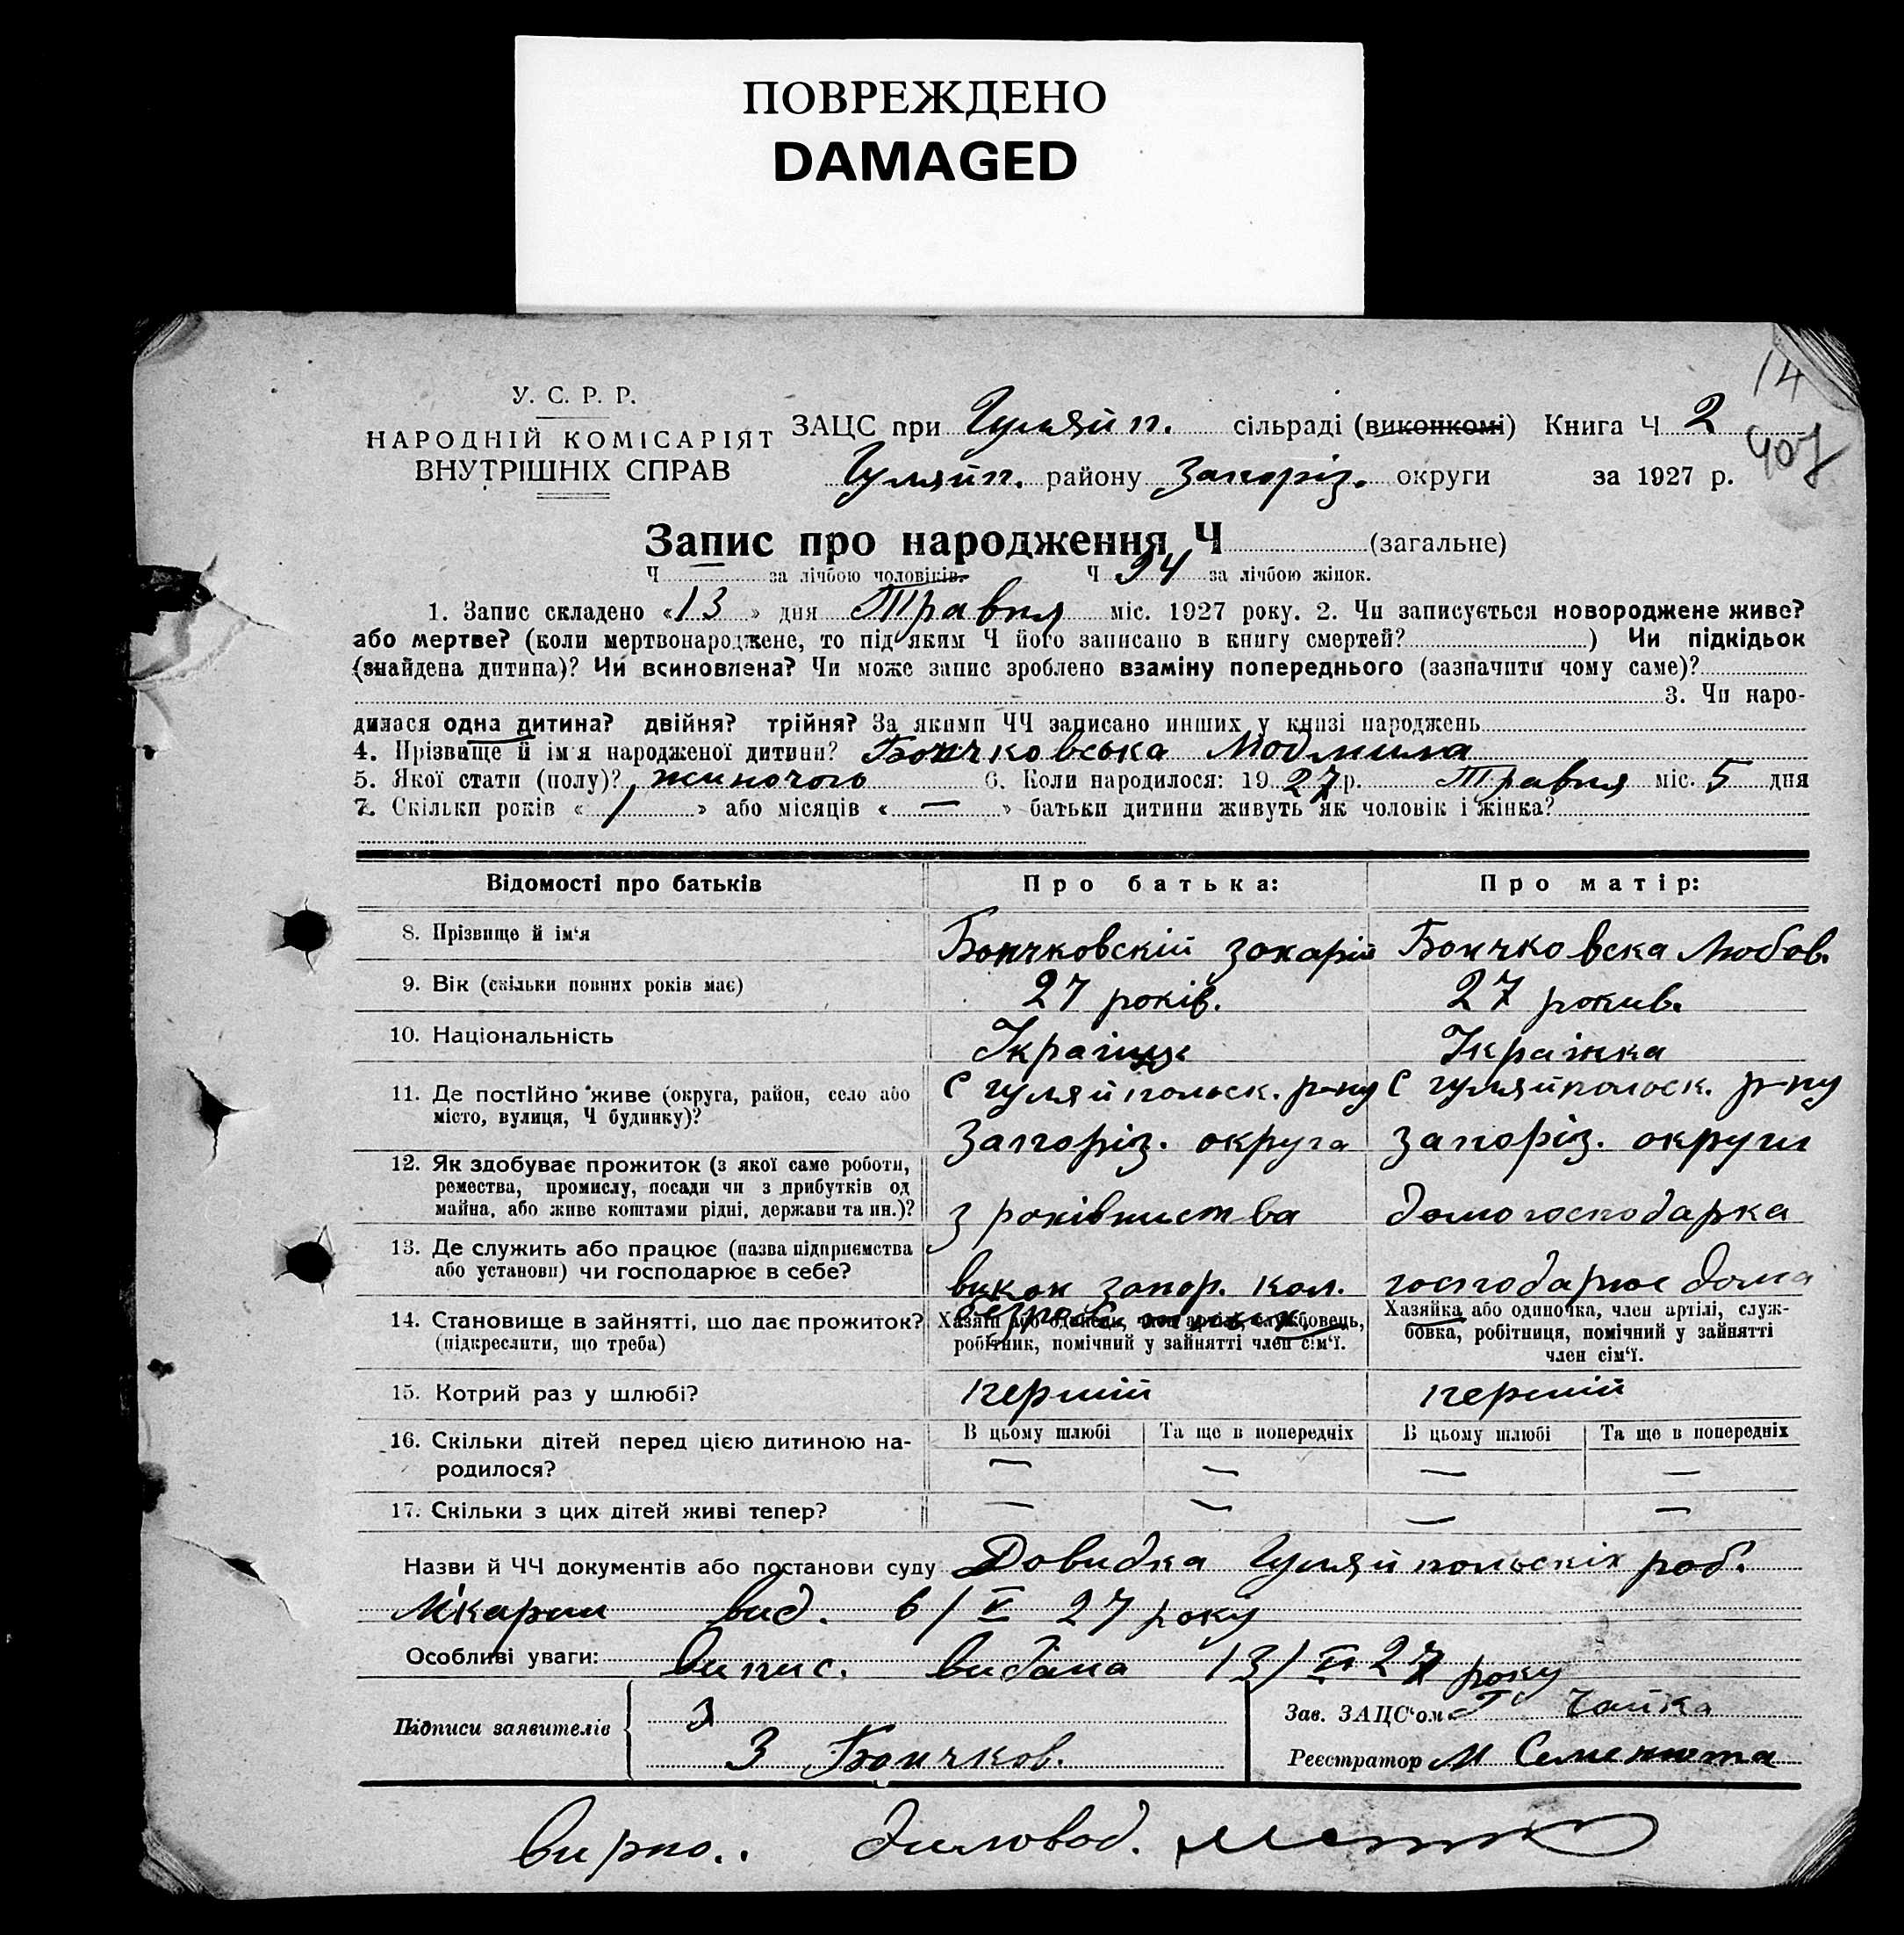 ПОВРЕЖДЕНО
DAMAGED
14
407
У. С. Р. Р.
НАРОДНІЙ КОМІСАРІЯТ
ВНУТРІШНІХ СПРАВ
ЗАЦС при Гуляйп. сільраді (виконкомі) Книга Ч 2
Гуляйп. району Запоріз. округи за 1927 р.
Запис про народження Ч (загальне)
Ч — за лічбою чоловіків. Ч 94 за лічбою жінок.
1. Запис складено «13» дня Травня міс. 1927 року. 2. Чи записується новороджене живе?
або мертве? (коли мертвонароджене, то під яким Ч його записано в книгу смертей?) Чи підкідьок
(знайдена дитина)? Чи всиновлена? Чи може запис зроблено взаміну попереднього (зазначити чому саме)?
3. Чи наро-
дилася одна дитина? двійня? трійня? За якими ЧЧ записано инших у книзі народжень
4. Прізвище й ім'я народженої дитини? Боичковська
5. Якої стати (полу)? жиночого 6. Коли народилося: 1927 р. Травня міс. 5 дня
7. Скільки років «1» або місяців «—» батьки дитини живуть як чоловік і жінка?
Відомості про батьків Про батька: Про матір:
8. Прізвище й ім'я Боичковскій Захарій Боичковска Любов.
9. Вік (скільки повних років має) 27 років. 27 рокив.
10. Національність Українець Українка
11. Де постійно живе (округа, район, село або
місто, вулиця, Ч будинку)?
С Гуляйпольск. р-ну С Гуляйпольск. р-ну
Запоріз. округа Запоріз. округи
12. Як здобуває прожиток (з якої саме роботи,
ремества, промислу, посади чи з прибутків од
майна, або живе коштами рідні, держави та ин.)?
з домогосподарка
13. Де служить або працює (назва підприємства
або установи) чи господарює в себе?
викон запор. кол. господарює дома
14. Становище в зайнятті, що дає прожиток?
(підкреслити, що треба)
Хазяїн або одинець, член артілі, службовець,
робітник, помічний у зайнятті член сім'ї.
Хазяйка або одиночка, член артілі, служ-
бовка, робітниця, помічний у зайнятті
член сім'ї.
15. Котрий раз у шлюбі? першій першій
16. Скільки дітей перед цією дитиною на-
родилося?
В цьому шлюбі Та ще в попередніх В цьому шлюбі Та ще в попередніх
— — — —
17. Скільки з цих дітей живі тепер? — — — —
Назви й ЧЧ документів або постанови суду Довидка Гуляйпольскіх роб.
Лікарни вид. 6/V 27 року
Особливі уваги: Випис. видана 13/VI 27 року
Підписи заявителів З
З Боичков.
Зав. ЗАЦС'ом Чайка
Реєстратор М Семенюта
вирно.. диловод.